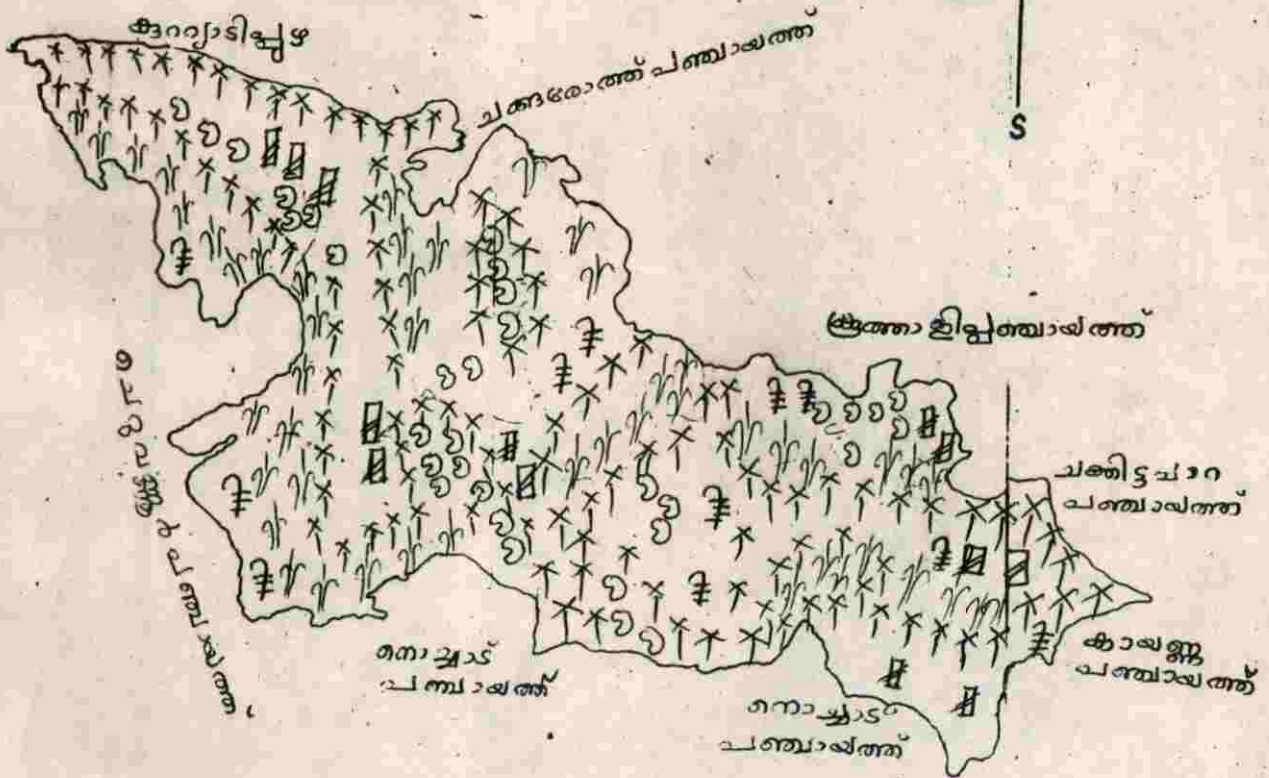 കുറ്റ്യാടിപ്പുഴ
ചങ്ങരോത്ത് പഞ്ചായത്ത്
S
കൂത്താളിപ്പഞ്ചായത്ത്
ചക്കിട്ടപാറ
പഞ്ചായത്ത്
ചെറുവണ്ണൂർ പഞ്ചായത്ത്
നൊച്ചാട്
പഞ്ചായത്ത്
കായണ്ണ
പഞ്ചായത്ത്
നൊച്ചാട്
പഞ്ചായത്ത്